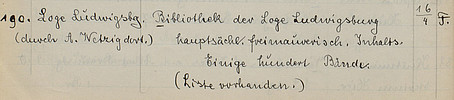 190. Loge Ludwigsbg. Bibliothek der Loge Ludwigsburg 16/4 F.
(durch A. Wetzig dort.) hauptsächl. freimauerisch. Inhalts.
Einige hundert Bände.
(Liste vorhanden.)